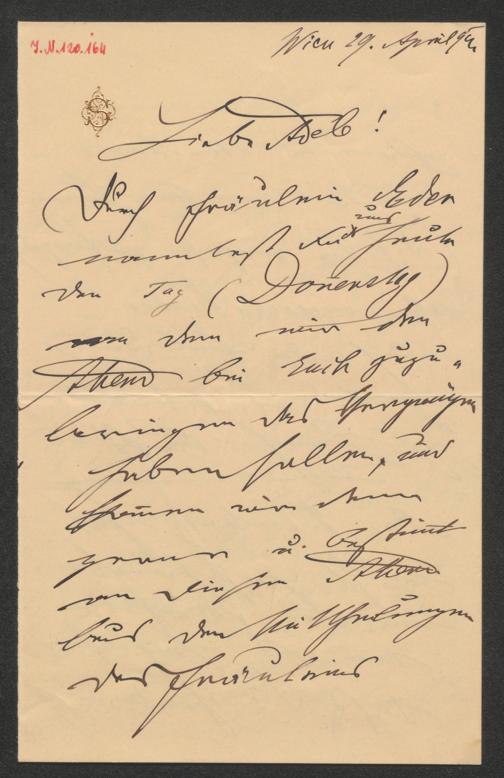 J.N. 120.164
Wien 29. April 9
Liebe Adele!
Durch Fräulein Eder
nanntest Du uns heute
den Tag (Donerstag)
an dem wir den
Abend bei Euch zuzu-
bringen das Vergnügen
haben sollen, und
kommen wir denn
genau u. bestimt
an diesem Abend
laut den Mittheilungen
des Fräuleins